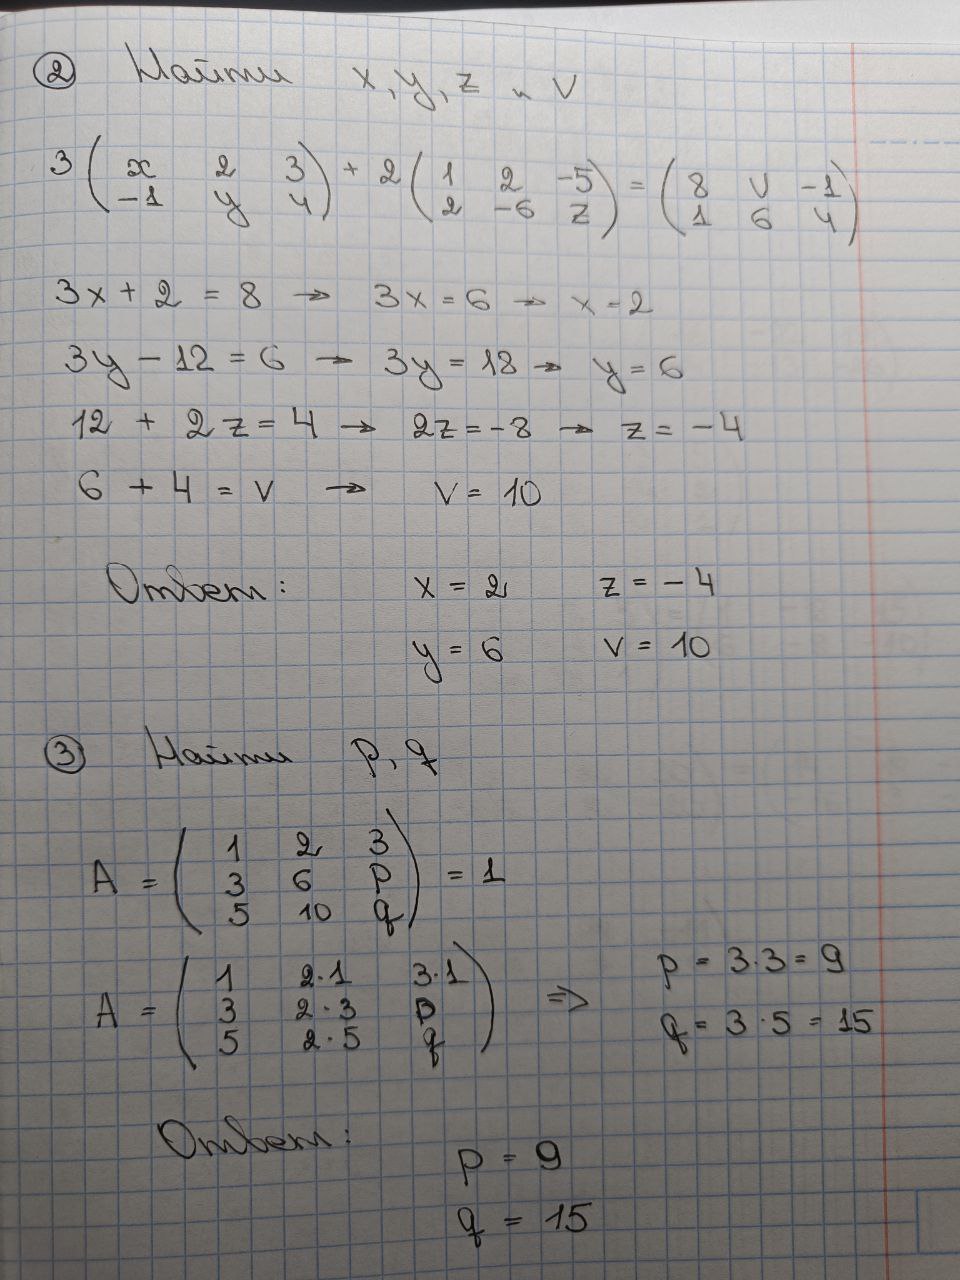 ② Найти x, y, z и v
3 ( x 2 3 ) + 2 ( 1 2 -5 ) = ( 8 v -1 )
-1 y 4 2 -6 z 1 6 4
3x + 2 = 8 → 3x = 6 → x = 2
3y - 12 = 6 → 3y = 18 → y = 6
12 + 2z = 4 → 2z = -8 → z = -4
6 + 4 = v → v = 10
Ответ: x = 2 z = -4
y = 6 v = 10
③ Найти p, q
1 2 3
A = ( 3 6 p ) = 1
5 10 q
1 2·1 3·1 p = 3·3 = 9
A = ( 3 2·3 p ) ⇒
5 2·5 q q = 3·5 = 15
Ответ:
p = 9
q = 15